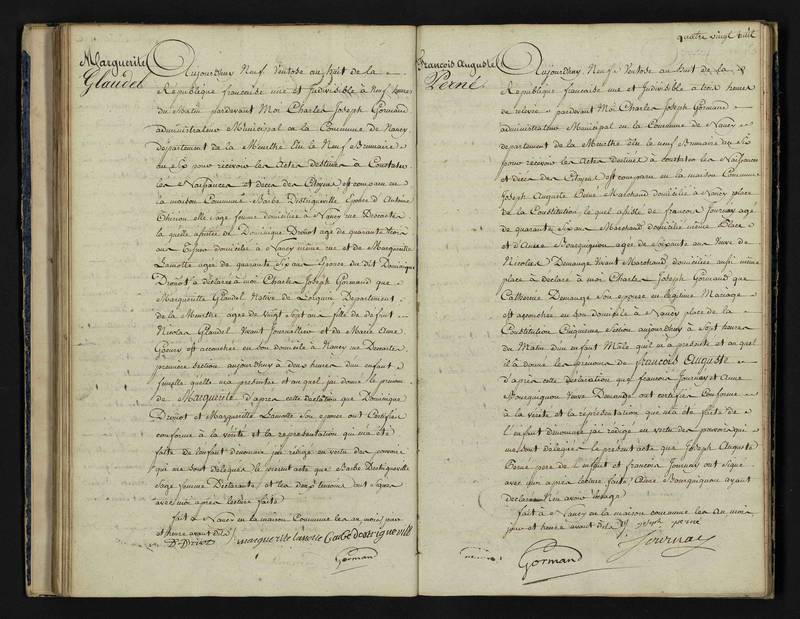 Marguerite
Glaudel
Aujourd'huy Neuf Ventose an huit de la
République française une et indivisible à Neuf heures
du Matin pardevant Moi Charles Joseph Gormand
administrateur Municipal en la Commune de Nancy
departement de la Meurthe Elu le Neuf Brumaire
an Six pour recevoir les Actes destinés à Constater
les Naissances et décés des Citoyens est comparu en
la maison Commune Barbe Epouse d'Antoine
elle sage femme domiciliée à Nancy rue
la quelle assistée de Dominique Drouot agé de quarante trois
ans domicilié à Nancy même rue et de Marguerite
Lamotte agée de quarante Six ans Epouse du dit Dominique
Drouot à déclaré à moi Charles Joseph Gormand que
Marguerite Glaudel Native de Lorquin Departement
de la Meurthe agée de vingt Sept ans fille de defunt
Nicolas Glaudel vivant Journallier et de Marie Anne
est accouchée en son domicile à Nancy rue
premiere section aujourd'huy à deux heures d'un enfant
femelle quelle m'a presentée et au quel jai donné le prenom
de Marguerite d'après cette declaration que Dominique
Drouot et Marguerite Lamotte son epouse ont Certifiée
conforme à la vérité et la representation qui m'a été
faite de l'enfant dénommé jai rédigé en vertu des pouvoirs
qui me sont delegués le present acte que Barbe
Sage femme Déclarante et les deux temoins ont signé
avec moi après lecture faite
fait à Nancy en la maison Commune les an, mois, jour
et heure avant dits
D. Drouot marguerite lamotte
Gormand
quatre vingt huit
François Auguste
Perné
Aujourd'huy Neuf Ventose an huit de la
République française une et Indivisible à trois heures
de relevée pardevant Moi Charles Joseph Gormand
administrateur Municipal en la Commune de Nancy
departement de la Meurthe Elu le neuf Brumaire an Six
pour recevoir les Actes destinés à constater les Naissances
et décés des Citoyens est comparu en la maison Commune
Joseph Auguste Perné Marchand domicilié à Nancy place
de la Constitution le quel assisté de françois Journay agé
de quarante Six ans Marchand domicilié même Place
et d'Anne Bourguignon agée de Soixante ans Veuve de
Nicolas Demange vivant Marchand domiciliée aussi même
place à déclaré à moi Charles Joseph Gormand que
Catherine Demange Son epouse en légitime Mariage
est accouchée en son domicile à Nancy place de la
Constitution Cinquieme Section aujourd'huy à Sept heures
du Matin d'un Enfant Mâle qu'il m'a présenté et au quel
il à donné les prenoms de françois Auguste
d'après cette Declaration que francois Journay et Anne
Bourguignon Veuve Demange ont certifiée Conforme
à la vérité et la représentation qui m'a été faite de
l'enfant dénommé jai rédigé en vertu des pouvoirs qui
me sont délégués le présent acte que Joseph Auguste
Perné pere de l'enfant et francois Journay ont signé
avec moi après lecture faite Anne Bourguignon ayant
declaré N'en avoir l'usage
fait à Nancy en la maison commune les An, mois
jour et heure avant dits
joseph perné
Journay
Gormand